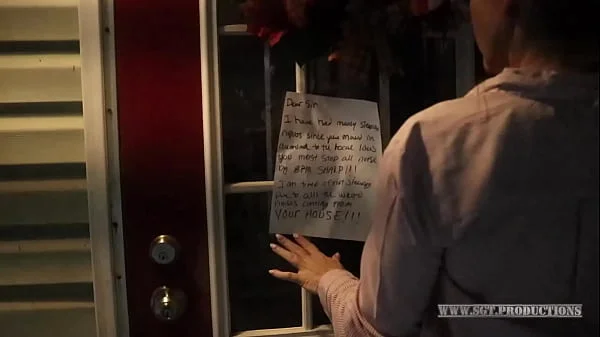 Dear Sir
I have had many sleepless
nights since you moved in
according to the local laws
you most stop all noise
by 8PM SHARP!!!
I am tired of not sleeping
due to all the weird
noises coming from
YOUR HOUSE!!!
WWW.SGT.PRODUCTIONS